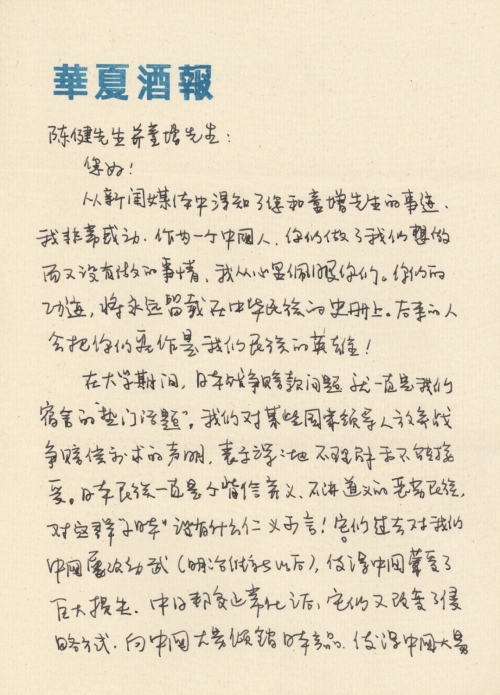 華夏酒報
陈健先生并童增先生：
您好！
从新闻媒体中得知了您和童增先生的事迹，
我非常感动。作为一个中国人，你们做了我们想做
而又没有做的事情，我从心里佩服你们。你们的
功迹，将永远留载在中华民族的史册上。后来的人
会把你们看作是我们民族的英雄！
在大学期间，日本战争赔款问题就一直是我们
宿舍的"热门话题"。我们对某些国家领导人放弃战
争赔偿要求的声明，表示深深地不理解和不能接
受。日本民族一直是个背信弃义、不讲道义的民族，
对这群"小日本"没有什么仁义可言！它们过去对我们
中国屡次动武（明治维新以后），使得中国蒙受了
巨大损失。中日邦交正常化后，它们又改变了侵
略方式，向中国大量倾销日本商品，使得中国大量